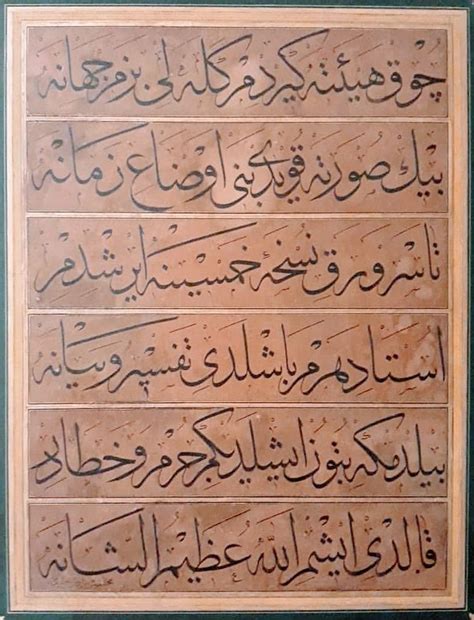 چوق هیئته كیردم كله لی بزم جهانه
بیك صورته قویدی بنی اوضاع زمانه
تا سر ورق نسخهٔ خمسینه ایرشدم
استاد هرم باشلدی تفسیر و بیانه
بیلدم كه بتون ایشلدیكم جرم و خطادر
قالدی ایشم الله عظیم الشانه